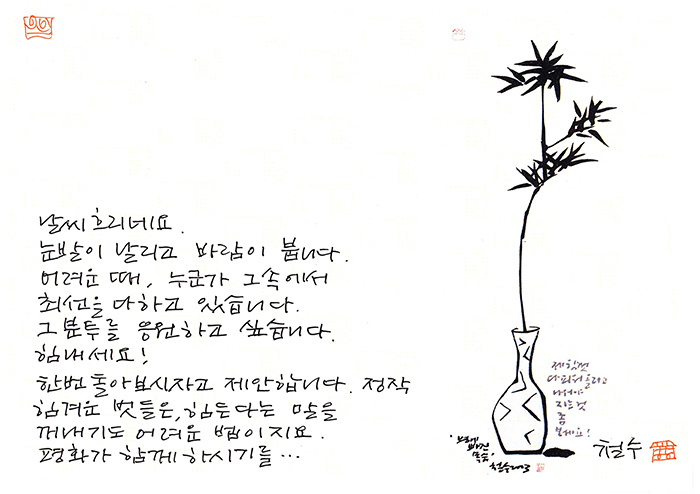 날씨 흐리네요.
눈발이 날리고 바람이 붑니다.
어려운 때, 누군가 그속에서
최선을 다하고 있습니다.
그 분투를 응원하고 싶습니다.
힘내세요!
한번 돌아보시자고 제안합니다. 정작
힘겨운 벗들은, 힘든다는 말을
꺼내기도 어려운 법이지요.
평화가 함께 하시기를…
제 할 것
지는 것
좀
보세요!
철수